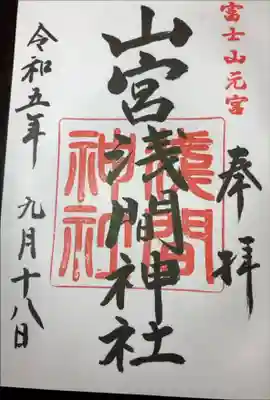 富士山元宮
奉拝
山宮浅間神社
淺間
神社
令和五年
九月十八日